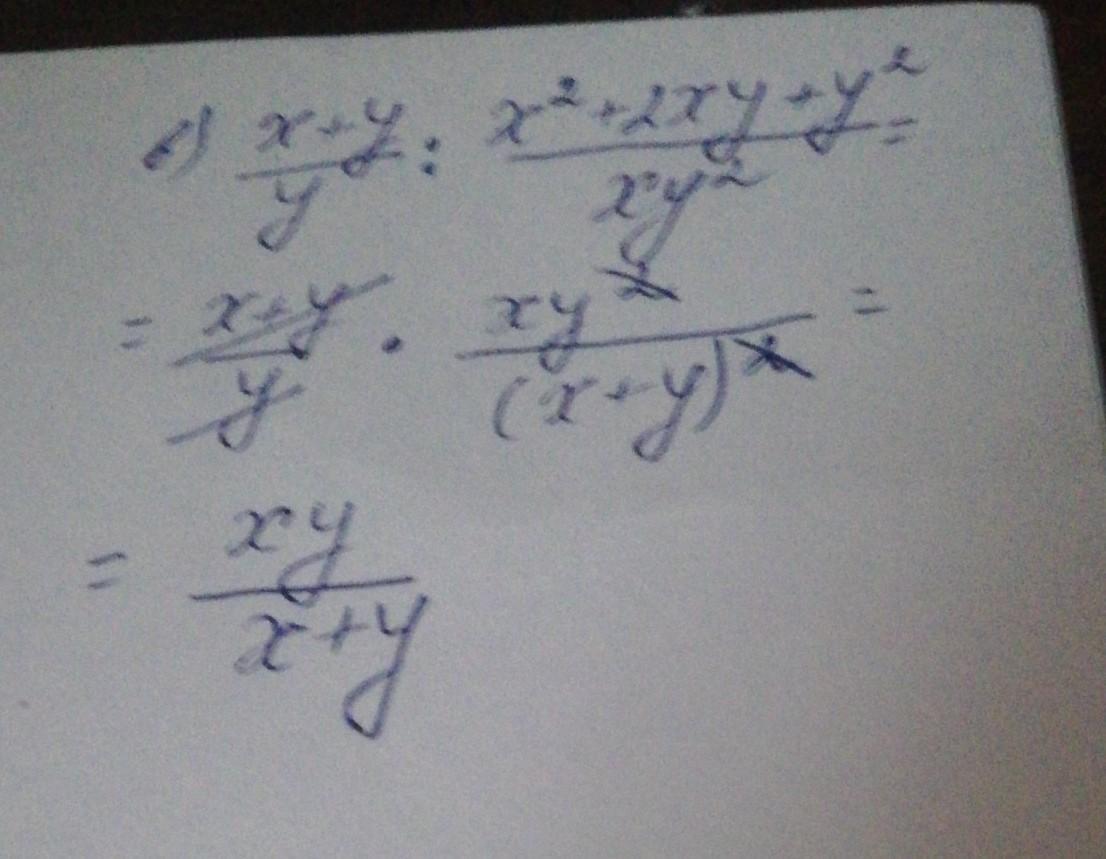 в) (x+y)/y : (x²+2xy+y²)/(xy²) =
= (x+y)/y · (xy²)/((x+y)²) =
= (xy)/(x+y)